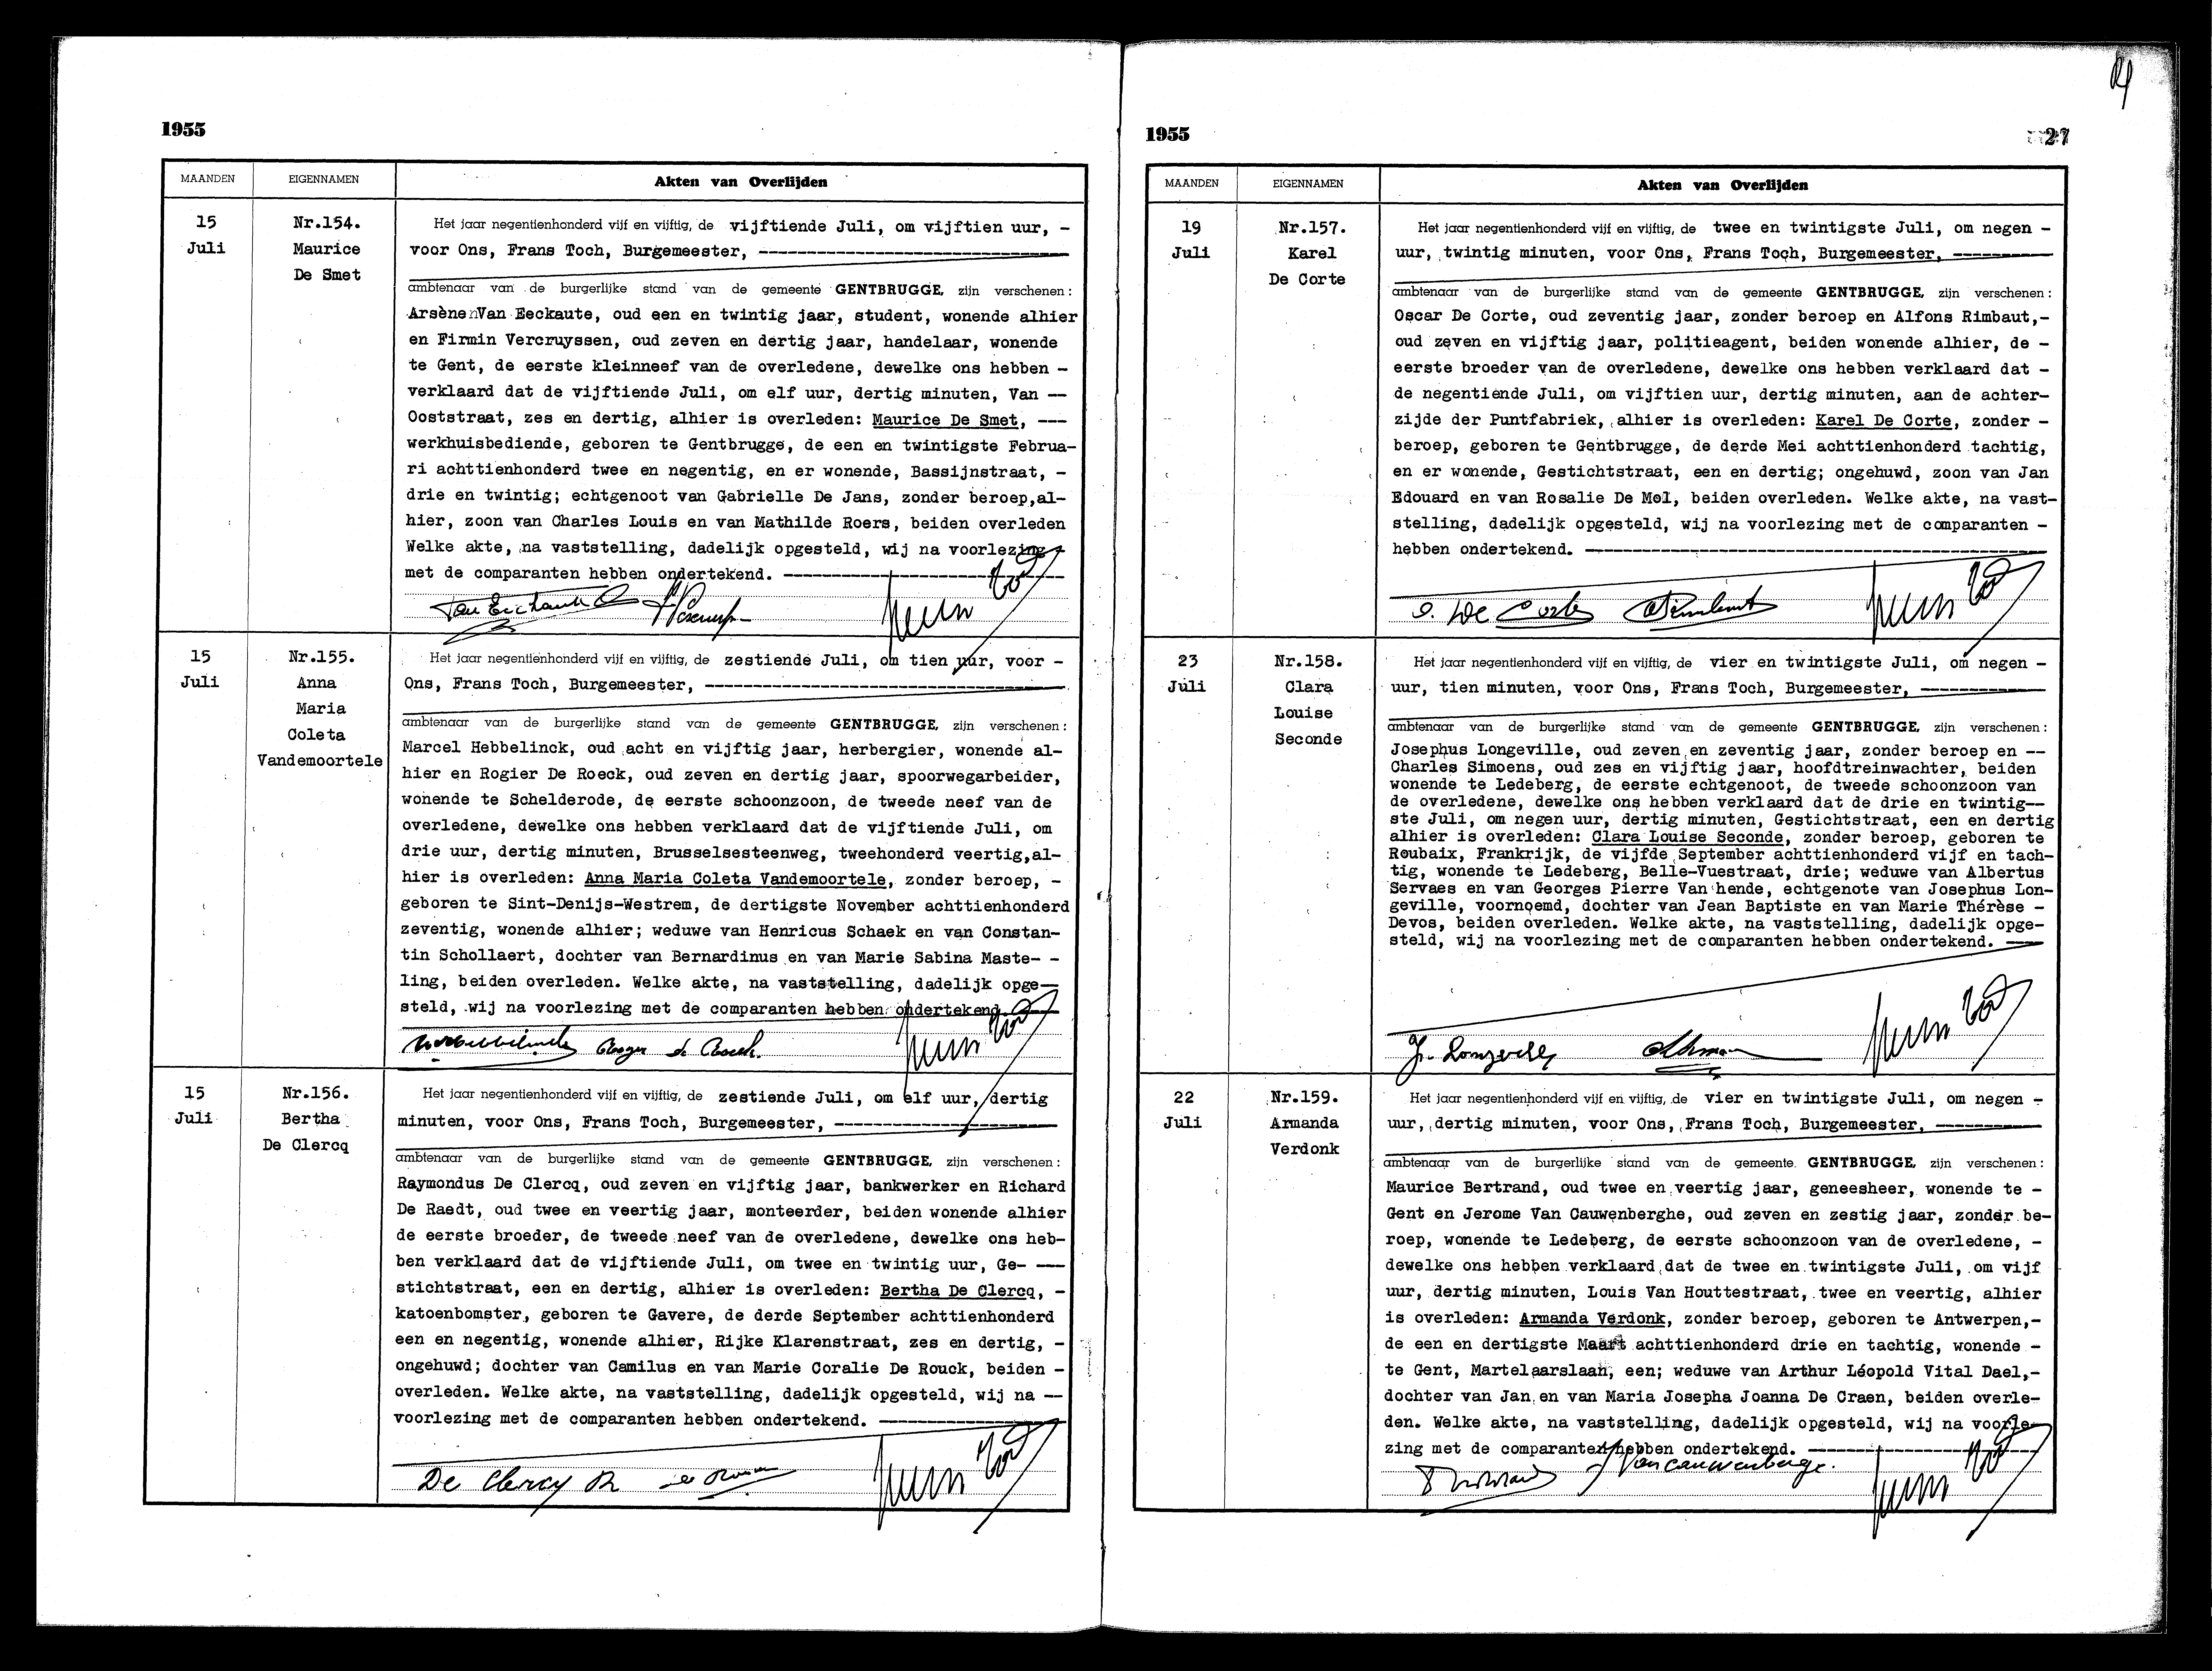 1955
MAANDEN
EIGENNAMEN
Akten van Overlijden
15
Juli
Nr.154.
Maurice
De Smet
Het jaar negentienhonderd vijf en vijftig, de vijftiende Juli, om vijftien uur, -
voor Ons, Frans Toch, Burgemeester, ---
ambtenaar van de burgerlijke stand van de gemeente GENTBRUGGE, zijn verschenen:
Arsène Van Eeckaute, oud een en twintig jaar, student, wonende alhier
en Firmin Vercruyssen, oud zeven en dertig jaar, handelaar, wonende
te Gent, de eerste kleinneef van de overledene, dewelke ons hebben -
verklaard dat de vijftiende Juli, om elf uur, dertig minuten, Van --
Ooststraat, zes en dertig, alhier is overleden: Maurice De Smet, ---
werkhuisbediende, geboren te Gentbrugge, de een en twintigste Februa-
ri achttienhonderd twee en negentig, en er wonende, Bassijnstraat, -
drie en twintig; echtgenoot van Gabrielle De Jans, zonder beroep,al-
hier, zoon van Charles Louis en van Mathilde Roers, beiden overleden
Welke akte, na vaststelling, dadelijk opgesteld, wij na voorlezing
met de comparanten hebben ondertekend. ---
15
Juli
Nr.155.
Anna
Maria
Coleta
Vandemoortele
Het jaar negentienhonderd vijf en vijftig, de zestiende Juli, om tien uur, voor -
Ons, Frans Toch, Burgemeester, ---
ambtenaar van de burgerlijke stand van de gemeente GENTBRUGGE, zijn verschenen:
Marcel Hebbelinck, oud acht en vijftig jaar, herbergier, wonende al-
hier en Rogier De Roeck, oud zeven en dertig jaar, spoorwegarbeider,
wonende te Schelderode, de eerste schoonzoon, de tweede neef van de
overledene, dewelke ons hebben verklaard dat de vijftiende Juli, om
drie uur, dertig minuten, Brusselsesteenweg, tweehonderd veertig,al-
hier is overleden: Anna Maria Coleta Vandemoortele, zonder beroep, -
geboren te Sint-Denijs-Westrem, de dertigste November achttienhonderd
zeventig, wonende alhier; weduwe van Henricus Schaek en van Constan-
tin Schollaert, dochter van Bernardinus en van Marie Sabina Maste- -
ling, beiden overleden. Welke akte, na vaststelling, dadelijk opge-
steld, wij na voorlezing met de comparanten hebben ondertekend.
15
Juli
Nr.156.
Bertha
De Clercq
Het jaar negentienhonderd vijf en vijftig, de zestiende Juli, om elf uur, dertig
minuten, voor Ons, Frans Toch, Burgemeester, ---
ambtenaar van de burgerlijke stand van de gemeente GENTBRUGGE, zijn verschenen:
Raymondus De Clercq, oud zeven en vijftig jaar, bankwerker en Richard
De Raedt, oud twee en veertig jaar, monteerder, beiden wonende alhier
de eerste broeder, de tweede neef van de overledene, dewelke ons heb-
ben verklaard dat de vijftiende Juli, om twee en twintig uur, Ge- ---
stichtstraat, een en dertig, alhier is overleden: Bertha De Clercq, -
katoenbomster, geboren te Gavere, de derde September achttienhonderd
een en negentig, wonende alhier, Rijke Klarenstraat, zes en dertig, -
ongehuwd; dochter van Camilus en van Marie Coralie De Rouck, beiden -
overleden. Welke akte, na vaststelling, dadelijk opgesteld, wij na --
voorlezing met de comparanten hebben ondertekend. ---
De Clercq R
1955
27
MAANDEN
EIGENNAMEN
Akten van Overlijden
19
Juli
Nr.157.
Karel
De Corte
Het jaar negentienhonderd vijf en vijftig, de twee en twintigste Juli, om negen -
uur, twintig minuten, voor Ons, Frans Toch, Burgemeester, ---
ambtenaar van de burgerlijke stand van de gemeente GENTBRUGGE, zijn verschenen:
Oscar De Corte, oud zeventig jaar, zonder beroep en Alfons Rimbaut,-
oud zeven en vijftig jaar, politieagent, beiden wonende alhier, de -
eerste broeder van de overledene, dewelke ons hebben verklaard dat -
de negentiende Juli, om vijftien uur, dertig minuten, aan de achter-
zijde der Puntfabriek, alhier is overleden: Karel De Corte, zonder -
beroep, geboren te Gentbrugge, de derde Mei achttienhonderd tachtig,
en er wonende, Gestichtstraat, een en dertig; ongehuwd, zoon van Jan
Edouard en van Rosalie De Mol, beiden overleden. Welke akte, na vast-
stelling, dadelijk opgesteld, wij na voorlezing met de comparanten -
hebben ondertekend. ---
O. De Corte
23
Juli
Nr.158.
Clara
Louise
Seconde
Het jaar negentienhonderd vijf en vijftig, de vier en twintigste Juli, om negen -
uur, tien minuten, voor Ons, Frans Toch, Burgemeester, ---
ambtenaar van de burgerlijke stand van de gemeente GENTBRUGGE, zijn verschenen:
Josephus Longeville, oud zeven en zeventig jaar, zonder beroep en --
Charles Simoens, oud zes en vijftig jaar, hoofdtreinwachter, beiden
wonende te Ledeberg, de eerste echtgenoot, de tweede schoonzoon van
de overledene, dewelke ons hebben verklaard dat de drie en twintig--
ste Juli, om negen uur, dertig minuten, Gestichtstraat, een en dertig
alhier is overleden: Clara Louise Seconde, zonder beroep, geboren te
Roubaix, Frankrijk, de vijfde September achttienhonderd vijf en tach-
tig, wonende te Ledeberg, Belle-Vuestraat, drie; weduwe van Albertus
Servaes en van Georges Pierre Van hende, echtgenote van Josephus Lon-
geville, voornoemd, dochter van Jean Baptiste en van Marie Thérèse -
Devos, beiden overleden. Welke akte, na vaststelling, dadelijk opge-
steld, wij na voorlezing met de comparanten hebben ondertekend. ---
22
Juli
Nr.159.
Armanda
Verdonk
Het jaar negentienhonderd vijf en vijftig, de vier en twintigste Juli, om negen -
uur, dertig minuten, voor Ons, Frans Toch, Burgemeester, ---
ambtenaar van de burgerlijke stand van de gemeente GENTBRUGGE, zijn verschenen:
Maurice Bertrand, oud twee en veertig jaar, geneesheer, wonende te -
Gent en Jerome Van Cauwenberghe, oud zeven en zestig jaar, zonder be-
roep, wonende te Ledeberg, de eerste schoonzoon van de overledene, -
dewelke ons hebben verklaard dat de twee en twintigste Juli, om vijf
uur, dertig minuten, Louis Van Houttestraat, twee en veertig, alhier
is overleden: Armanda Verdonk, zonder beroep, geboren te Antwerpen,-
de een en dertigste Maart achttienhonderd drie en tachtig, wonende -
te Gent, Martelaarslaan, een; weduwe van Arthur Léopold Vital Dael,-
dochter van Jan en van Maria Josepha Joanna De Craen, beiden overle-
den. Welke akte, na vaststelling, dadelijk opgesteld, wij na voorle-
zing met de comparanten hebben ondertekend. ---